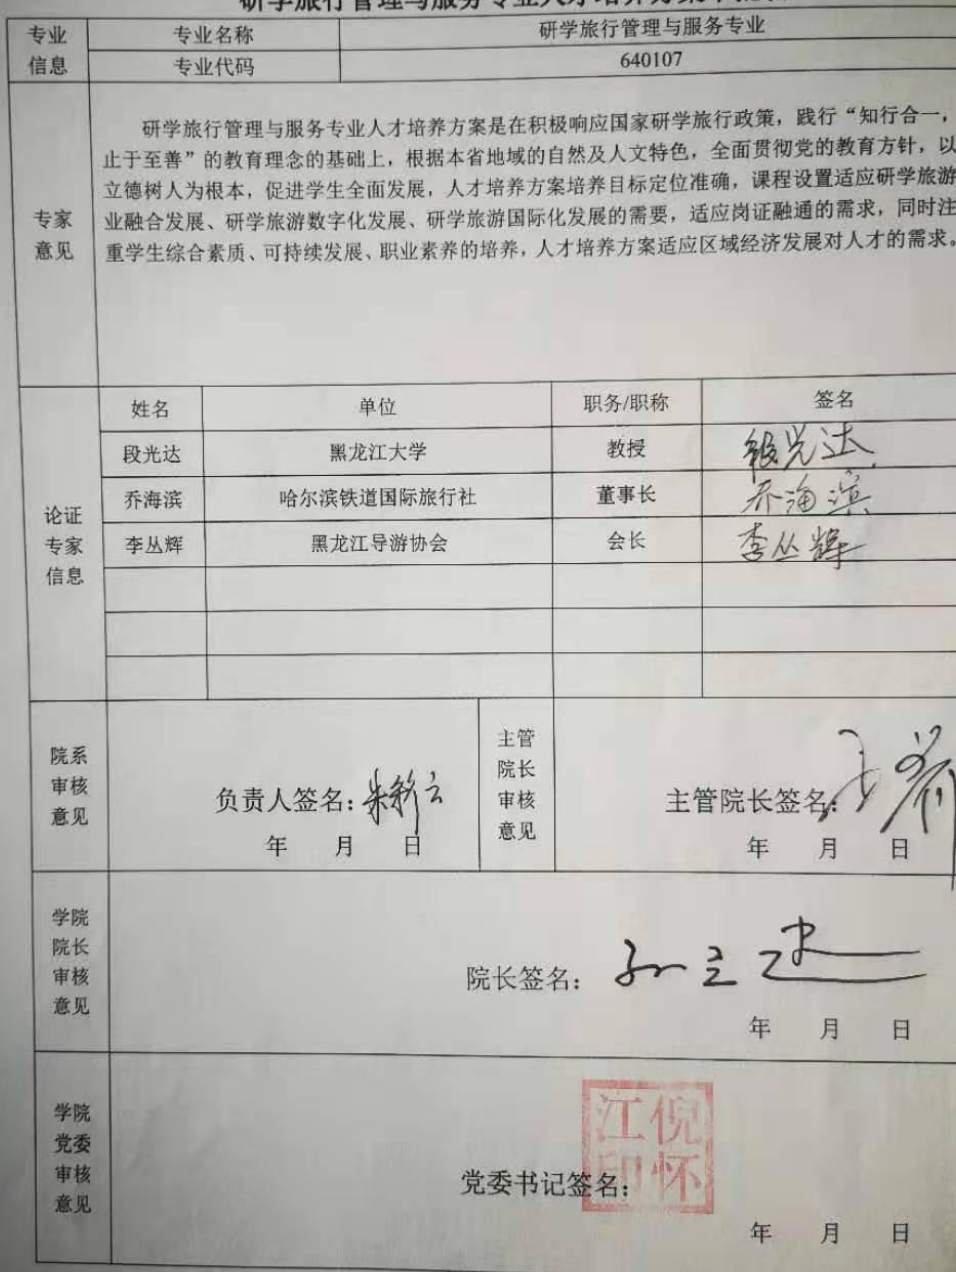 研学旅行管理与服务专业人才培养方案
专业信息
专业名称 研学旅行管理与服务专业
专业代码 640107
专家意见
研学旅行管理与服务专业人才培养方案是在积极响应国家研学旅行政策，践行“知行合一，
止于至善”的教育理念的基础上，根据本省地域的自然及人文特色，全面贯彻党的教育方针，以
立德树人为根本，促进学生全面发展，人才培养方案培养目标定位准确，课程设置适应研学旅游
业融合发展、研学旅游数字化发展、研学旅游国际化发展的需要，适应岗证融通的需求，同时注
重学生综合素质、可持续发展、职业素养的培养，人才培养方案适应区域经济发展对人才的需求。
论证专家信息
姓名 单位 职务/职称 签名
段光达 黑龙江大学 教授 段光达
乔海滨 哈尔滨铁道国际旅行社 董事长 乔海滨
李丛辉 黑龙江导游协会 会长 李丛辉
院系审核意见
负责人签名：
年 月 日
主管院长审核意见
主管院长签名：
年 月 日
学院院长审核意见
院长签名：
年 月 日
学院党委审核意见
党委书记签名：
倪怀江印
年 月 日